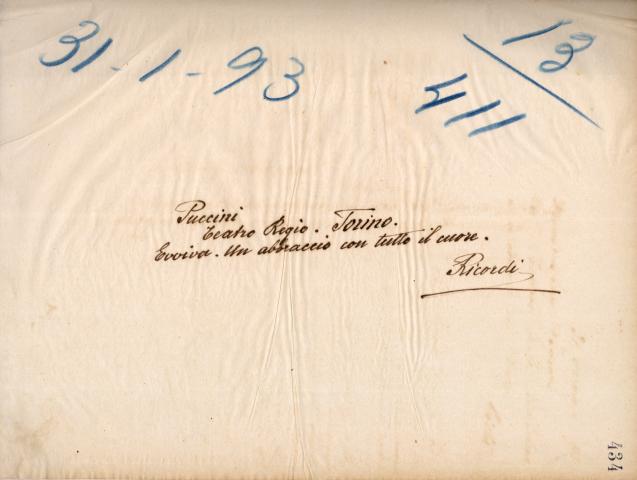 31-1-93
13
411
Puccini
Teatro Regio. Torino.
Evviva. Un abbraccio con tutto il cuore.
Ricordi
434